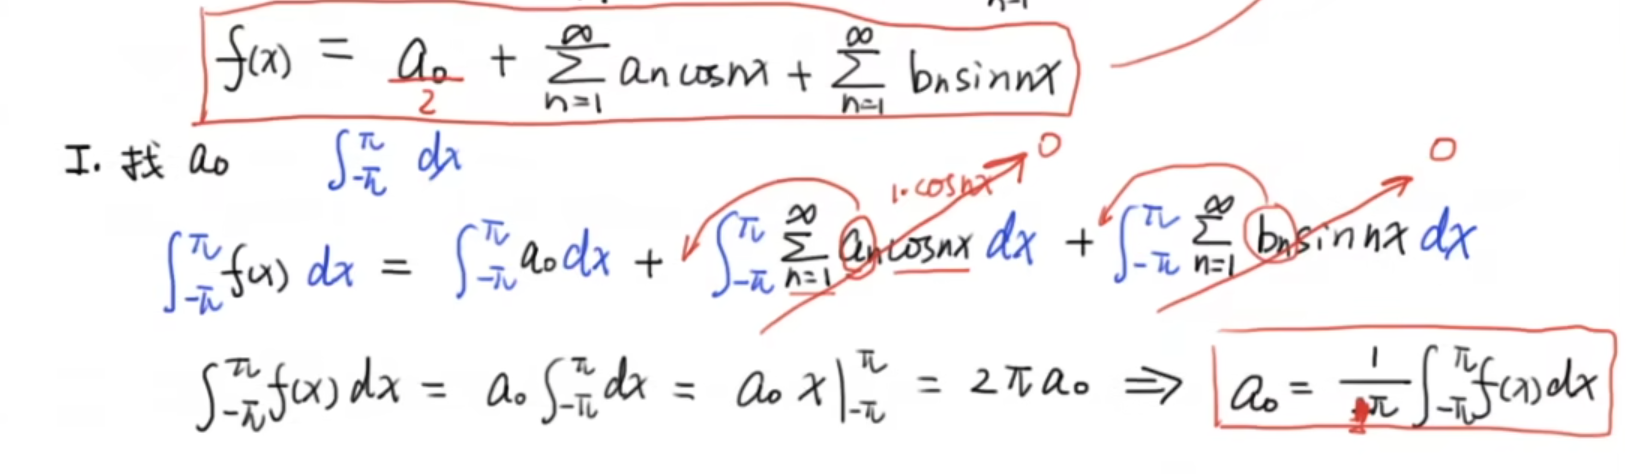 f(x) = a₀/2 + ∑_{n=1}^{∞} aₙcosnx + ∑_{n=1}^{∞} bₙsinnx
I. 找 a₀ ∫_{-π}^{π} dx
1·cosnx 0 0
∫_{-π}^{π} f(x) dx = ∫_{-π}^{π} a₀ dx + ∫_{-π}^{π} ∑_{n=1}^{∞} aₙcosnx dx + ∫_{-π}^{π} ∑_{n=1}^{∞} bₙsinnx dx
∫_{-π}^{π} f(x) dx = a₀ ∫_{-π}^{π} dx = a₀ x |_{-π}^{π} = 2πa₀ ⇒ a₀ = 1/π ∫_{-π}^{π} f(x) dx